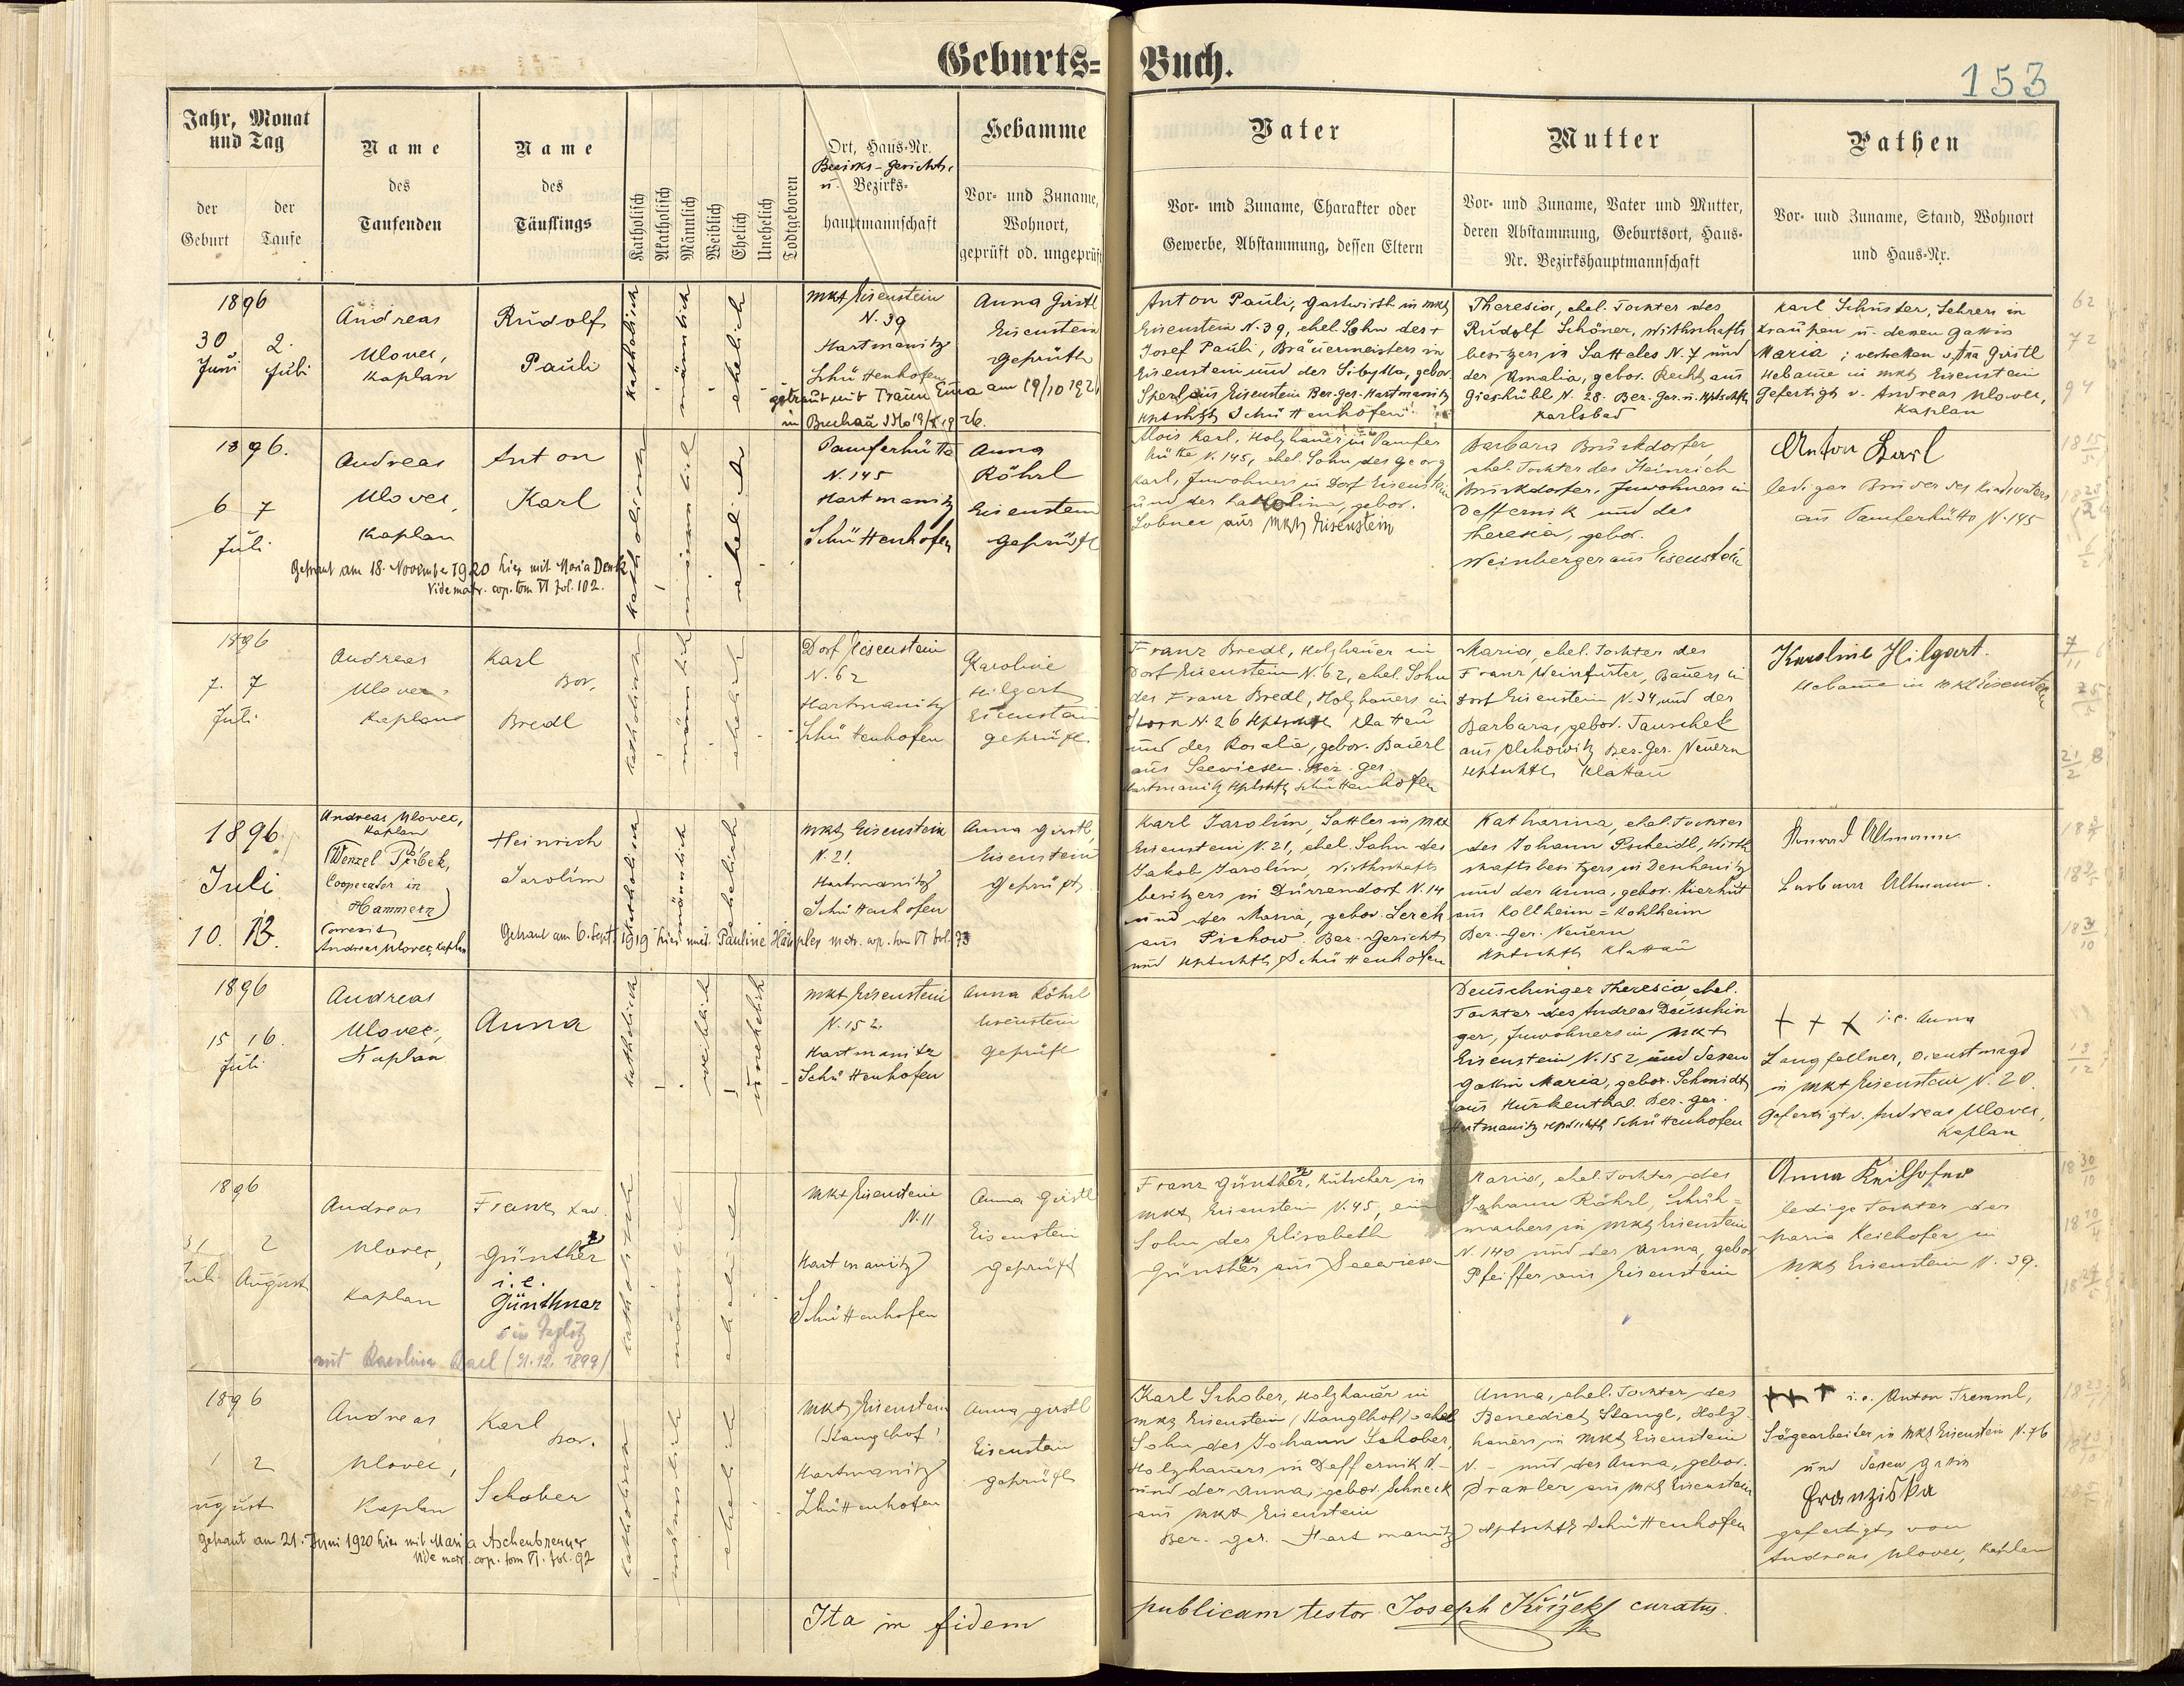 Geburts=Buch.
153
Jahr, Monat und Tag
der Geburt
der Taufe
Name des Taufenden
Name des Täuflings
Katholisch
Akatholisch
Männlich
Weiblich
Ehelich
Unehelich
Todtgeboren
Ort, Haus-Nr.
Bezirks-Gerichts-
u. Bezirks-
hauptmannschaft
Hebamme
Vor- und Zuname,
Wohnort,
geprüft od. ungeprüft
Vater
Vor- und Zuname, Charakter oder
Gewerbe, Abstammung, dessen Eltern
Mutter
Vor- und Zuname, Vater und Mutter,
deren Abstammung, Geburtsort, Haus-
Nr. Bezirkshauptmannschaft
Pathen
Vor- und Zuname, Stand, Wohnort
und Haus-Nr.
1896
30 2.
Juni Juli
Andreas
Ulovec,
Kaplan
Rudolf
Pauli
katholisch
männlich
ehelich
Mkt Eisenstein
N. 39
Hartmanitz
Schüttenhofen
getraut mit Traun Ema am 19/10 1926
in Buchau
Anna Girstl
Eisenstein
geprüft
Anton Pauli, Gastwirth in Mkt
Eisenstein N. 39, ehel. Sohn des +
Josef Pauli, Bräuermeisters in
Eisenstein und der Sibylla, gebor.
Sperl aus Eisenstein Bez. Ger. Hartmanitz
Hptschft Schüttenhofen
Theresia, ehel. Tochter des
Rudolf Schöner, Wirthschafts
besitzers in Satteles N. 7 und
der Amalia, gebor. Recht aus
Gieshübl N. 28. Bez. Ger. u. Hptschft
Karlsbad
Karl Schuster, Lehrer in
Kraupen u. dessen Gattin
Maria; vertreten d. Ana Girstl
Hebame in Mkt Eisenstein
Gefertigt v. Andreas Ulovec,
Kaplan
1896.
6 7
Juli
Andreas
Ulovec,
Kaplan
Anton
Karl
katholisch
männlich
ehelich
Pamferhütte
N. 145
Hartmanitz
Schüttenhofen
Anna
Röhrl
Eisenstein
geprüft
Getraut am 18. November 1920 hier mit Maria Denk
Vide matr. cop. tom VI fol. 102.
Alois Karl, Holzhauer in Pamfer
hütte N. 145, ehel. Sohn des Georg
Karl, Inwohners in Dorf Eisenstein
und der Katharina, gebor.
Lobner aus Mkt Eisenstein
Barbara Bruckdorfer,
ehel. Tochter des Heinrich
Bruckdorfer, Inwohners in
Deffernik und der
Theresia, gebor.
Weinberger aus Eisenstein
Anton Karl
lediger Bruder des Kindsvaters
aus Pamferhütte N. 145
1896
7. 7
Juli
Andreas
Ulovec,
Kaplan
Karl
Bor.
Bredl
katholisch
männlich
ehelich
Dorf Eisenstein
N. 62
Hartmanitz
Schüttenhofen
Karoline
Hilgart
Eisenstein
geprüft
Franz Bredl, Holzhauer in
Dorf Eisenstein N. 62, ehel. Sohn
des Franz Bredl, Holzhauers in
Storn N. 26 Hptschft Klattau
und der Rosalia, gebor. Baierl
aus Seewiesen. Bez. Ger.
Hartmanitz Hptschft Schüttenhofen
Maria, ehel. Tochter des
Franz Weinfurter, Bauers in
Dorf Eisenstein N. 34 und der
Barbara, gebor. Tauschek
aus Olchowitz Bez. Ger. Neuern
Hptschft Klattau
Karoline Hilgart.
Hebame in Mkt Eisenstein
1896.
Juli
10. 13.
Andreas Ulovec,
Kaplan
(Wenzel Přibek,
Cooperator in
Hammern)
correxit
Andreas Ulovec, Kaplan
Heinrich
Jarolím
katholisch
männlich
ehelich
Mkt Eisenstein
N. 21.
Hartmanitz
Schüttenhofen
Anna Girstl,
Eisenstein
geprüft
Getraut am 6. Sept. 1919 hier mit Pauline Häupler matr. cop. tom VI fol. 73
Karl Jarolím, Sattler in Mkt
Eisenstein N. 21, ehel. Sohn des
Jakob Jarolím, Wirthschafts
besitzers in Dürrendorf N. 14
und der Maria, gebor. Lerch
aus Pichow. Bez. Gericht
und Hptschft Schüttenhofen
Katharina, ehel. Tochter
des Johann Pscheidl, Wirth
schaftsbesitzers in Deschenitz
und der Anna, gebor. Kierhut
aus Kollheim = Kohlheim
Bez. Ger. Neuern
Hptschft Klattau
Konrad Altmann
Barbara Altmann.
1896
15 16.
Juli
Andreas
Ulovec,
Kaplan
Anna
katholisch
weiblich
unehelich
Mkt Eisenstein
N. 152.
Hartmanitz
Schüttenhofen
Anna Röhrl
Eisenstein
geprüft
Deuschinger Theresia, ehel.
Tochter des Andreas Deuschin
ger, Inwohners in Mkt
Eisenstein N. 152 und dessen
Gattin Maria, gebor. Schmidt
aus Hurkenthal. Bez. Ger.
Hartmanitz Hptschft Schüttenhofen
+ + + i. e. Anna
Langfellner, Dienstmagd
in Mkt Eisenstein N. 20.
Gefertigt v. Andreas Ulovec,
Kaplan
1896
31 2
Juli August
Andreas
Ulovec,
Kaplan
Franz Xav.
Günther
i. e.
Günthner
mit Karolina Karl (21.12. 1899)
katholisch
männlich
ehelich
Mkt Eisenstein
N. 11
Hartmanitz
Schüttenhofen
Anna Girstl
Eisenstein
geprüft
Franz Günther, Kutscher in
Mkt Eisenstein N. 45, ein
Sohn der Elisabeth
Günther aus Seewiesen
Maria, ehel. Tochter des
Johann Röhrl, Schuh=
machers in Mkt Eisenstein
N. 140 und der Anna, gebor
Pfeiffer aus Eisenstein
Anna Keilhofer
ledige Tochter der
Maria Keilhofer in
Mkt Eisenstein N. 39.
1896
1 2
August
Andreas
Ulovec,
Kaplan
Karl
Bor.
Schober
katholisch
männlich
ehelich
Mkt Eisenstein
(Stanglhof)
Hartmanitz
Schüttenhofen
Anna Girstl
Eisenstein
geprüft
Getraut am 21. Juni 1920 hier mit Maria Aschenbrenner
Vide matr. cop. tom VI. fol. 92
Karl Schober, Holzhauer in
Mkt Eisenstein (Stanglhof) ehel
Sohn des Johann Schober,
Holzhauers in Deffernik N. -
und der Anna, gebor. Schneck
aus Mkt Eisenstein
Bez. Ger. Hartmanitz
Anna, ehel. Tochter des
Benedict Stangl, Holz-
hauers in Mkt Eisenstein
N. - und der Anna, gebor.
Draxler aus Mkt Eisenstein
Hptschft Schüttenhofen
+++ i. e. Anton Tremml,
Sägearbeiter in Mkt Eisenstein N. 76
und dessen Gattin
Franziska
gefertigt von
Andreas Ulovec, Kaplan
Ita in fidem publicam testor Joseph Křížek curatus.